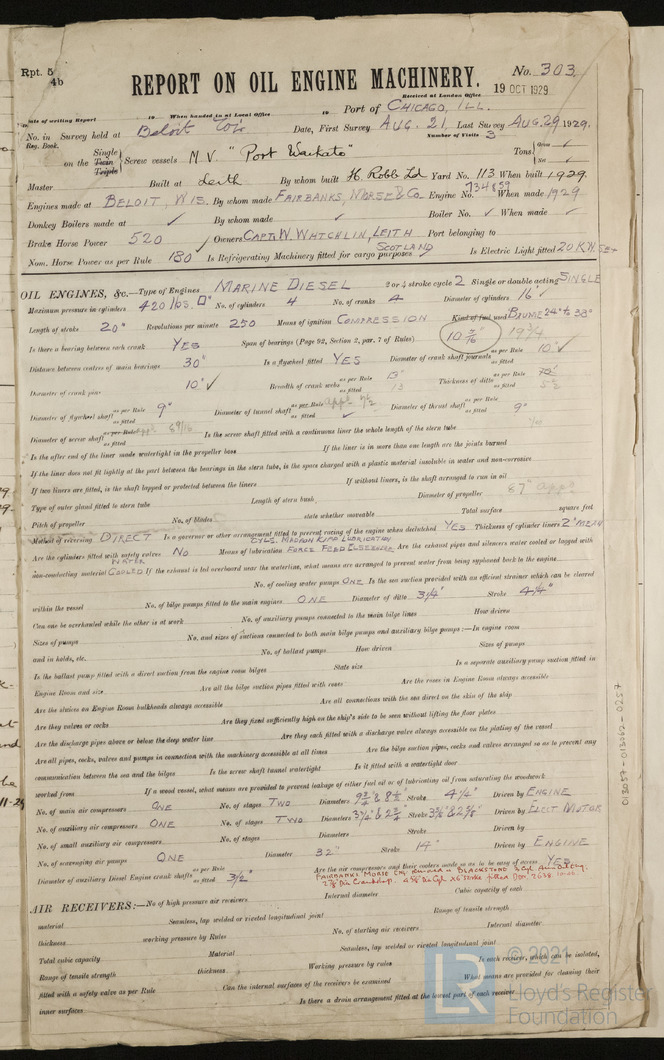 Rpt. 5
4b
REPORT ON OIL ENGINE MACHINERY.
No. 303
Received at London Office
19 OCT 1929
Date of writing Report 19 When handed in at Local Office 19 Port of CHICAGO, ILL.
No. in Survey held at Beloit Wis. Date, First Survey AUG. 21, Last Survey AUG. 29 1929.
Reg. Book. Number of Visits 3
on the Single Twin Triple Screw vessels M.V. "Port Waikato" Tons Gross Net
Master Built at Leith By whom built H. Robb Ld Yard No. 113 When built 1929.
Engines made at BELOIT, WIS. By whom made FAIRBANKS, MORSE & CO. Engine No. 734859 When made 1929
Donkey Boilers made at ✓ By whom made ✓ Boiler No. ✓ When made ✓
Brake Horse Power 520 Owners CAPT. W. WHICHLIN, LEITH SCOTLAND Port belonging to
Nom. Horse Power as per Rule 180 Is Refrigerating Machinery fitted for cargo purposes Is Electric Light fitted 20 K.W. SET
OIL ENGINES, &c.—Type of Engines MARINE DIESEL 2 or 4 stroke cycle 2 Single or double acting SINGLE
Maximum pressure in cylinders 420 lbs. □" No. of cylinders 4 No. of cranks 4 Diameter of cylinders 16" ✓
Length of stroke 20" Revolutions per minute 250 Means of ignition COMPRESSION Kind of fuel used BAUME 24° to 38°
Is there a bearing between each crank YES Span of bearings (Page 92, Section 2, par. 7 of Rules) 19 3/4
Distance between centres of main bearings 30" Is a flywheel fitted YES Diameter of crank shaft journals as per Rule as fitted 10" ✓
Diameter of crank pins 10" ✓ Breadth of crank webs as per Rule as fitted 13 Thickness of ditto as per Rule as fitted 5 1/2
Diameter of flywheel shaft as per Rule as fitted 9" Diameter of tunnel shaft as per Rule as fitted Diameter of thrust shaft as per Rule as fitted 9"
Diameter of screw shaft as per Rule as fitted Is the screw shaft fitted with a continuous liner the whole length of the stern tube
Is the after end of the liner made watertight in the propeller boss If the liner is in more than one length are the joints burned
If the liner does not fit tightly at the part between the bearings in the stern tube, is the space charged with a plastic material insoluble in water and non-corrosive
If two liners are fitted, is the shaft lapped or protected between the liners If without liners, is the shaft arranged to run in oil
Type of outer gland fitted to stern tube Length of stern bush Diameter of propeller 87" app.
Pitch of propeller No. of blades state whether moveable Total surface square feet
Method of reversing DIRECT Is a governor or other arrangement fitted to prevent racing of the engine when declutched YES Thickness of cylinder liners 2"
Are the cylinders fitted with safety valves No Means of lubrication FORCE FEED ELSEWHERE Are the exhaust pipes and silencers water cooled or lagged with
non-conducting material WATER COOLED If the exhaust is led overboard near the waterline, what means are arranged to prevent water from being syphoned back to the engine
No. of cooling water pumps ONE Is the sea suction provided with an efficient strainer which can be cleared
within the vessel No. of bilge pumps fitted to the main engines ONE Diameter of ditto 3 1/4" Stroke 4 1/4"
Can one be overhauled while the other is at work No. of auxiliary pumps connected to the main bilge lines How driven
Sizes of pumps No. and sizes of suctions connected to both main bilge pumps and auxiliary bilge pumps:—In engine room
and in holds, etc. No. of ballast pumps How driven Sizes of pumps
Is the ballast pump fitted with a direct suction from the engine room bilges State size Is a separate auxiliary pump suction fitted in
Engine Room and size Are all the bilge suction pipes fitted with roses Are the roses in Engine Room always accessible
Are the sluices on Engine Room bulkheads always accessible Are all connections with the sea direct on the skin of the ship
Are they valves or cocks Are they fixed sufficiently high on the ship's side to be seen without lifting the floor plates
Are the discharge pipes above or below the deep water line Are they each fitted with a discharge valve always accessible on the plating of the vessel
Are all pipes, cocks, valves and pumps in connection with the machinery accessible at all times Are the bilge suction pipes, cocks and valves arranged so as to prevent any
communication between the sea and the bilges Is the screw shaft tunnel watertight Is it fitted with a watertight door
worked from If a wood vessel, what means are provided to prevent leakage of either fuel oil or of lubricating oil from saturating the woodwork
No. of main air compressors ONE No. of stages TWO Diameters 9 3/4 & 8 1/2" Stroke 4 1/4" Driven by ENGINE
No. of auxiliary air compressors ONE No. of stages TWO Diameters Stroke Driven by ELECT MOTOR
No. of small auxiliary air compressors No. of stages Diameters Stroke Driven by
No. of scavenging air pumps ONE Diameter 32" Stroke 14" Driven by ENGINE
Diameter of auxiliary Diesel Engine crank shafts as per Rule as fitted 3 1/2" Are the air compressors and their coolers made so as to be easy of access YES
AIR RECEIVERS:—No. of high pressure air receivers Internal diameter Cubic capacity of each
material Seamless, lap welded or riveted longitudinal joint Range of tensile strength
thickness working pressure by Rules No. of starting air receivers Internal diameter
Total cubic capacity Material Seamless, lap welded or riveted longitudinal joint
Range of tensile strength thickness Working pressure by rules Is each receiver, which can be isolated,
fitted with a safety valve as per Rule Can the internal surfaces of the receivers be examined What means are provided for cleaning their
inner surfaces Is there a drain arrangement fitted at the lowest part of each receiver
013057-013062-0257
LR
© 2021
Lloyd's Register
Foundation